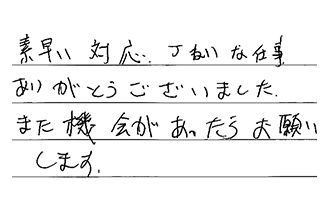 素早い対応、丁ねいな仕事
ありがとうございました。
また機会があったらお願い
します。